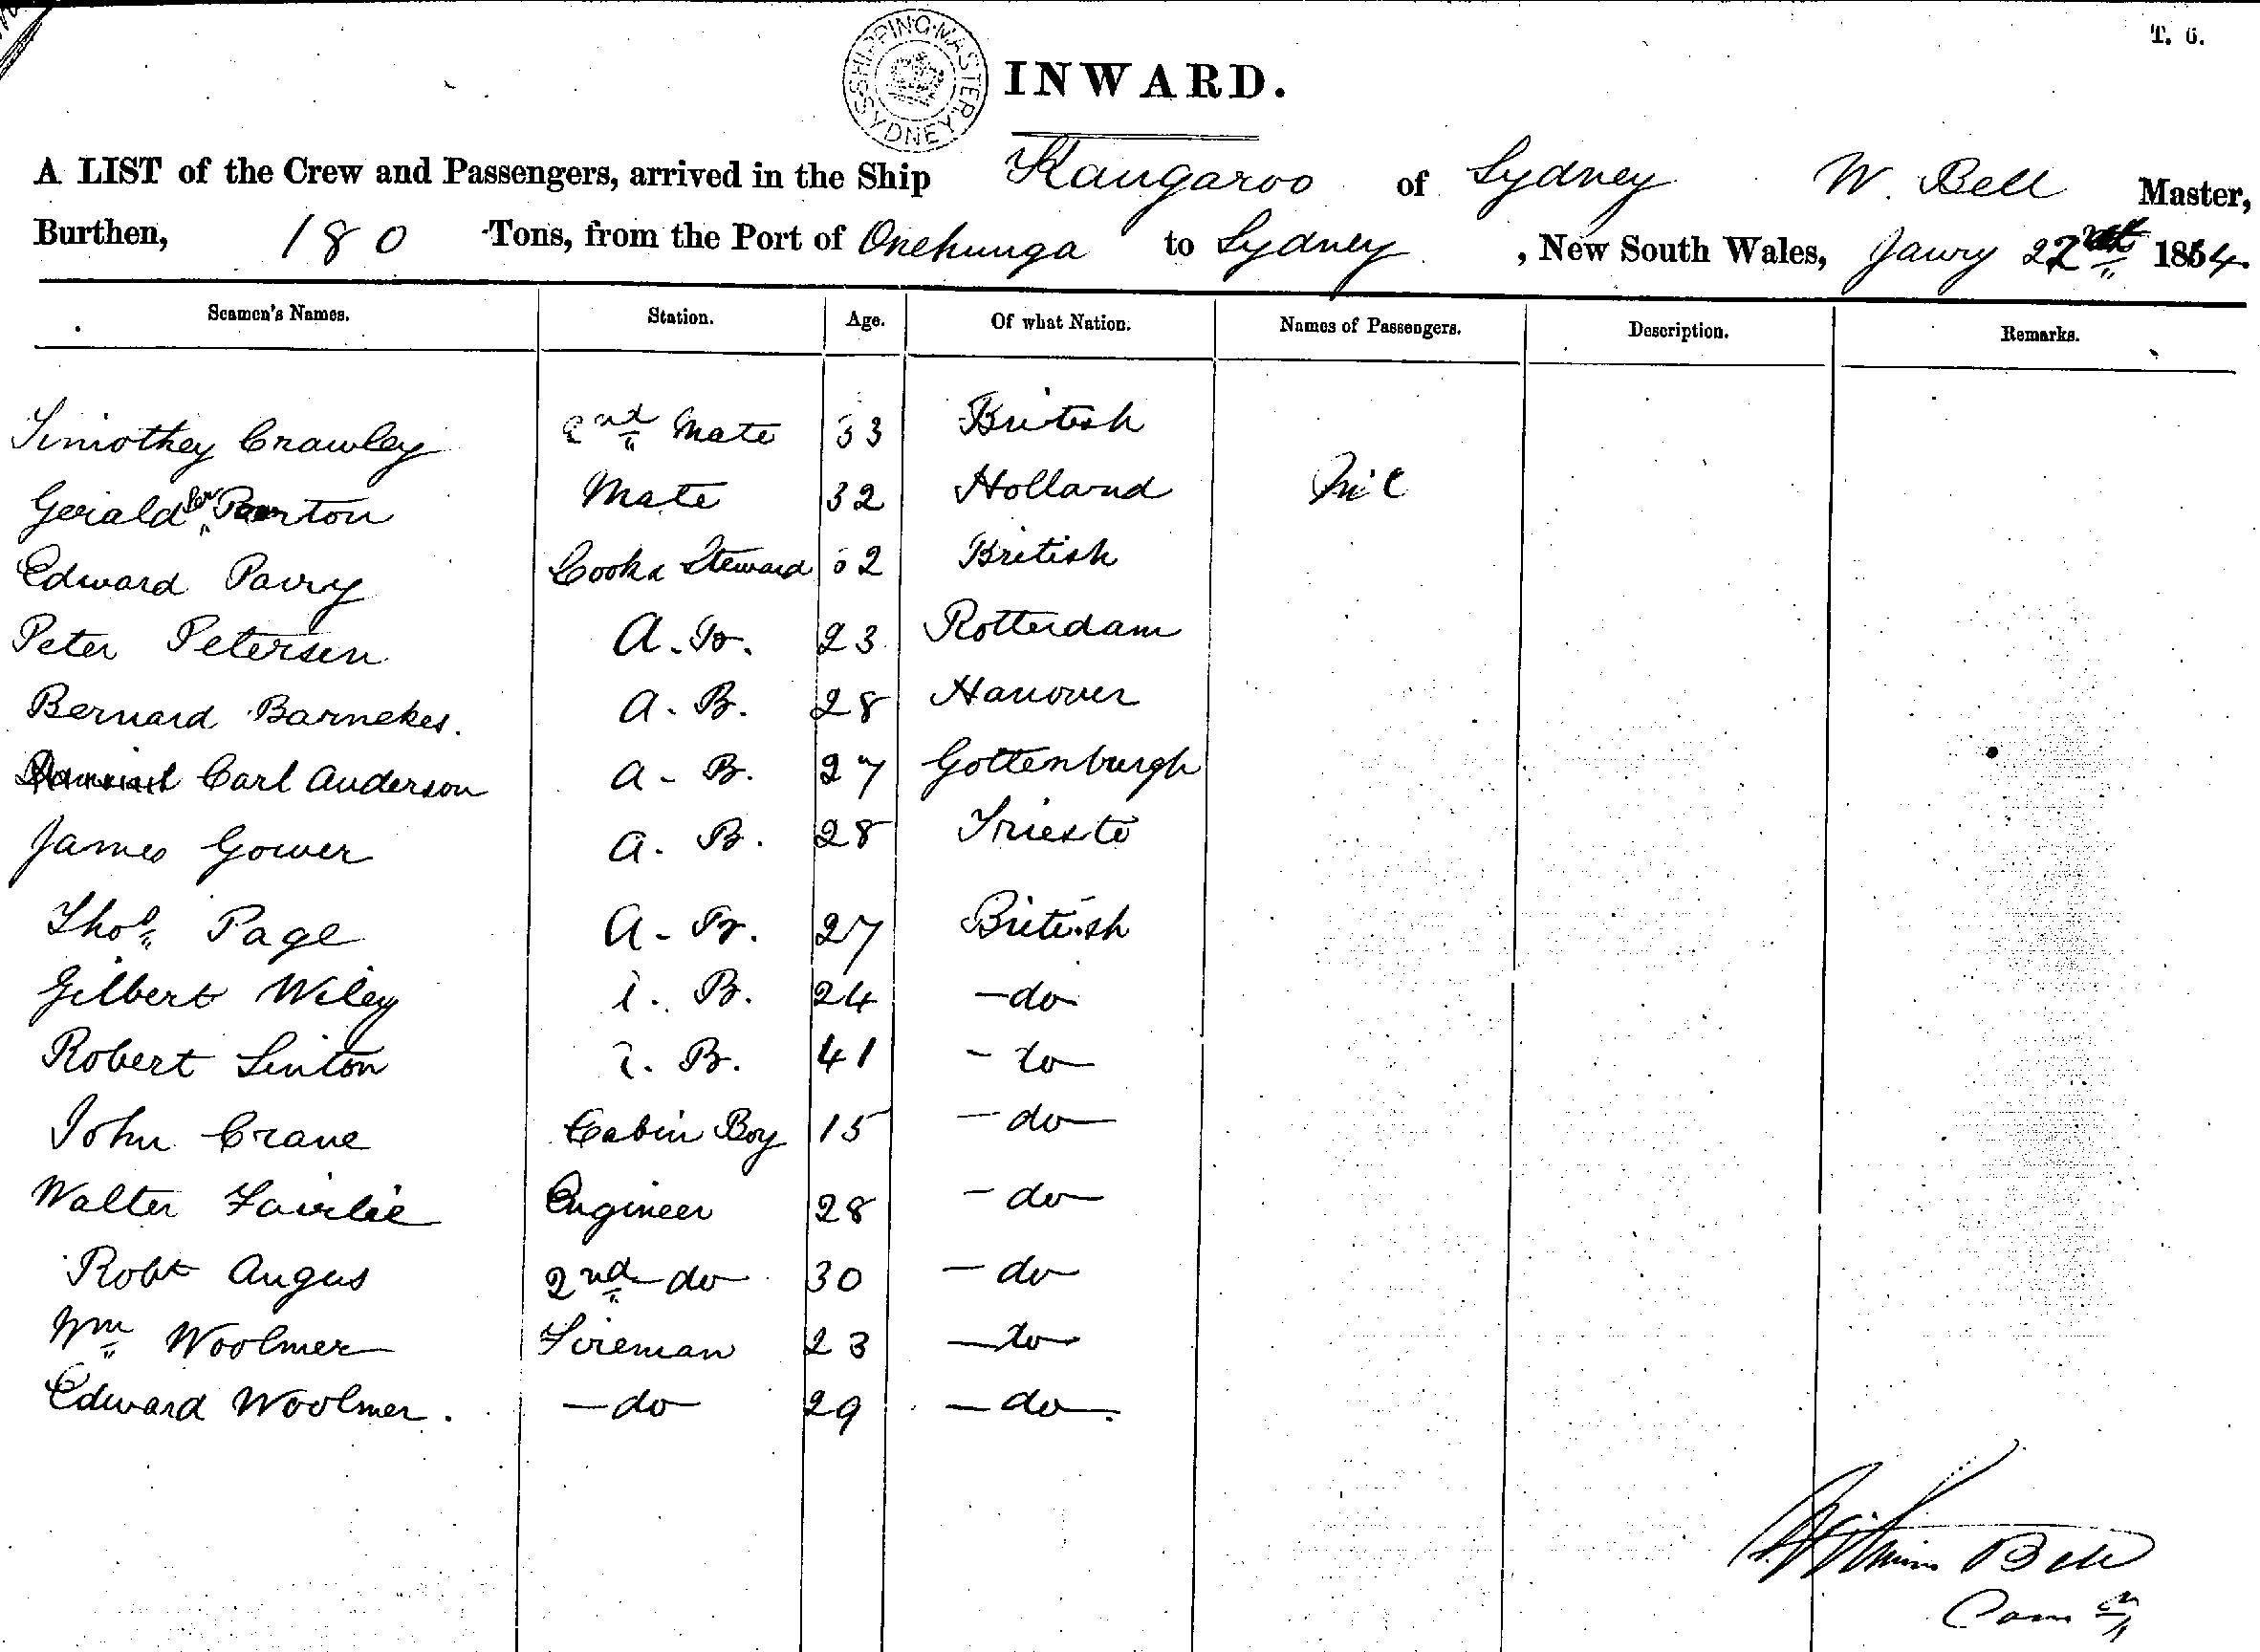 T. 6.
SHIPPING MASTER SYDNEY
INWARD.
A LIST of the Crew and Passengers, arrived in the Ship Kangaroo of Sydney W. Bell Master,
Burthen, 180 Tons, from the Port of Onehunga to Sydney, New South Wales, Jawry 22nd 1864.
Seamen's Names. Station. Age. Of what Nation. Names of Passengers. Description. Remarks.
Timothey Crawley 2nd Mate 33 British
Gerald Parton Mate 32 Holland Nil
Edward Parry Cook & Steward 52 British
Peter Petersen A. B. 23 Rotterdam
Bernard Barnekes. A. B. 28 Hanover
Carl Anderson A. B. 27 Gottenburgh
James Gower A. B. 28 Trieste
Thos Page A. B. 27 British
Gilbert Wiley B. 24 - do
Robert Linton B. 41 - do
John Crane Cabin Boy 15 - do
Walter Fairlie Engineer 28 - do
Robt Angus 2nd do 30 - do
Wm Woolmer Fireman 23 - do
Edward Woolmer. - do 29 - do.
William Bell